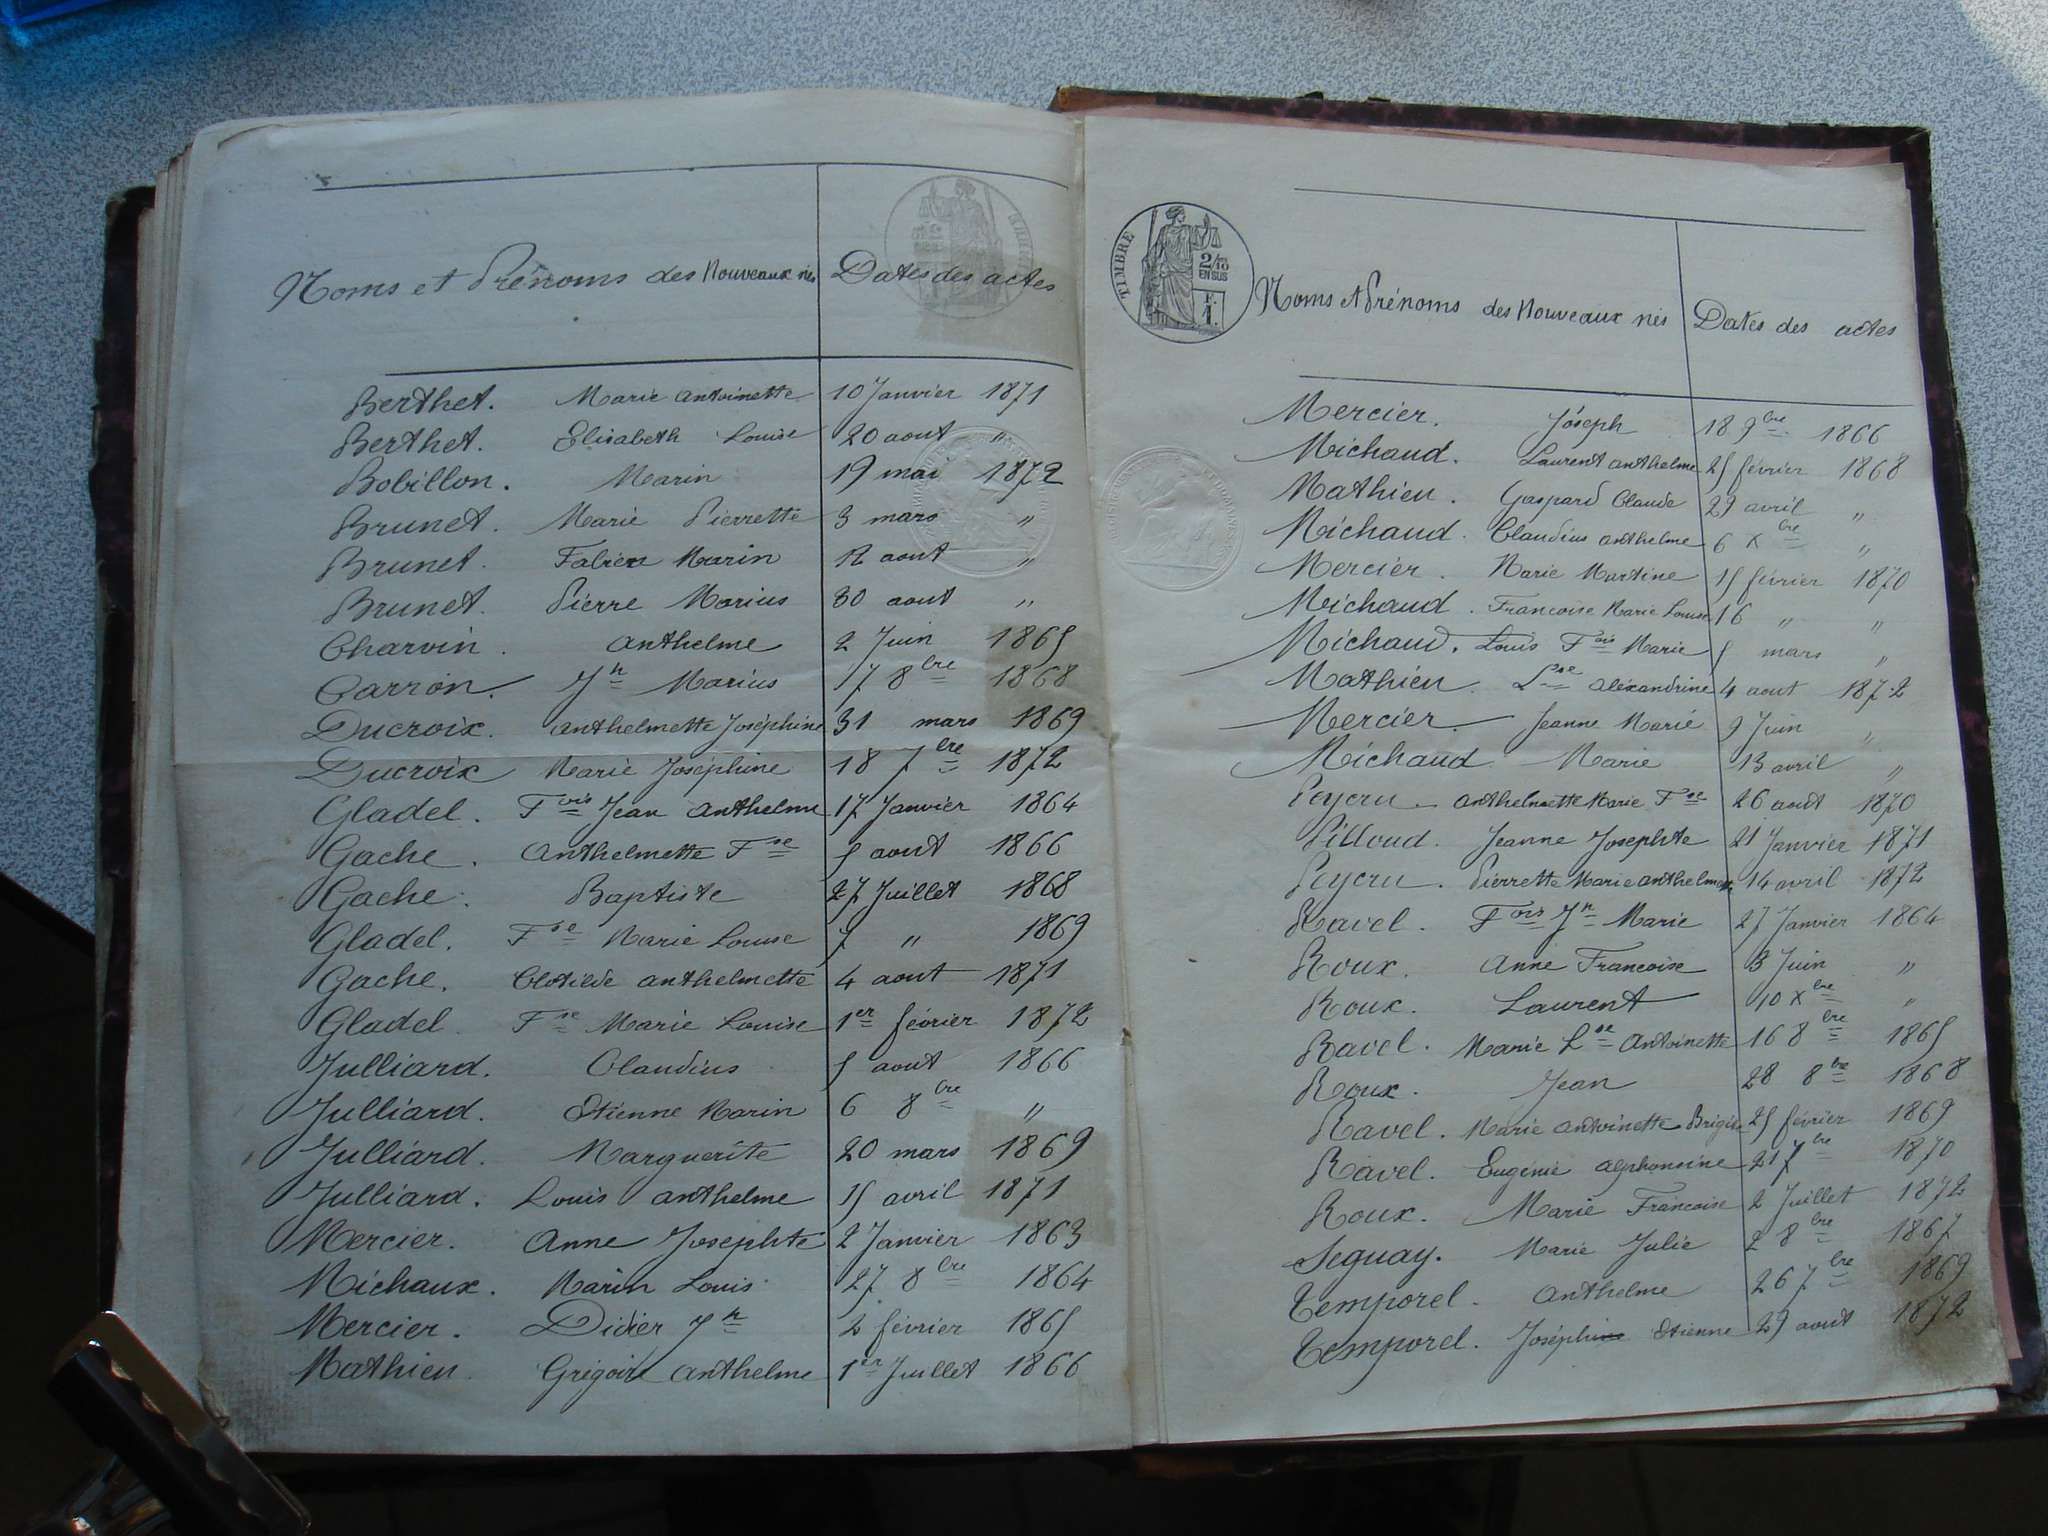 Noms et Prénoms des Nouveaux nés Dates des actes
Berthet. Marie Antoinette 10 Janvier 1871
Berthet. Elisabeth Louise 20 aout "
Bobillon. Marin 19 mai 1872
Brunet. Marie Pierrette 3 mars "
Brunet. Fabien Marin 12 aout "
Brunet. Pierre Marius 30 aout "
Charvin. Anthelme 2 Juin 1865
Carron. Jh Marius 17 8bre 1868
Ducroix. Anthelmette Joséphine 31 mars 1869
Ducroix Marie Joséphine 18 7bre 1872
Gladel. Fois Jean Anthelme 17 Janvier 1864
Gache. Anthelmette Fse 5 aout 1866
Gache. Baptiste 27 Juillet 1868
Gladel. Fse Marie Louise 7 " 1869
Gache. Clotilde anthelmette 4 aout 1871
Gladel. Fse Marie Louise 1er février 1872
Julliard. Claudius 5 aout 1866
Julliard. Etienne Marin 6 8bre "
Julliard. Marguerite 20 mars 1869
Julliard. Louis anthelme 15 avril 1871
Mercier. Anne Josephte 2 Janvier 1863
Michaux. Marin Louis 27 8bre 1864
Mercier. Didier Jh 2 février 1865
Mathieu. Grégoire anthelme 1er Juillet 1866
TIMBRE
2/10
EN SUS
F.
1.
Noms et Prénoms des Nouveaux nés Dates des actes
Mercier. Jóseph 18 9bre 1866
Michaud. Laurent anthelme 25 février 1868
Mathieu. Gaspard Claude 29 avril "
Michaud. Claudius anthelme 6 Xbre "
Mercier. Marie Martine 15 février 1870
Michaud. Francoise Marie Louise 16 " "
Michaud. Louis Fois Marie 5 mars "
Mathieu. Lse aléxandrine 4 aout 1872
Mercier. Jeanne Marie 9 Juin "
Michaud Marie 13 avril "
Peycru. anthelmette Marie Fse 26 aout 1870
Pilloud. Jeanne Josephte 21 Janvier 1871
Peycru. Pierrette Marie anthelme 14 avril 1872
Ravel. Fois Jh Marie 27 Janvier 1864
Roux. Anne Francoise 3 Juin "
Roux. Laurent 10 Xbre "
Ravel. Marie Lse Antoinette 16 8bre 1865
Roux. Jean 28 8bre 1868
Ravel. Marie antoinette 25 février 1869
Ravel. Eugénie alphonsine 21 7bre 1870
Roux. Marie Francoise 2 Juillet 1872
Seguay. Marie Julie 2 8bre 1867
Temporel. anthelme 26 7bre 1869
Temporel. Joséph Etienne 29 aout 1872